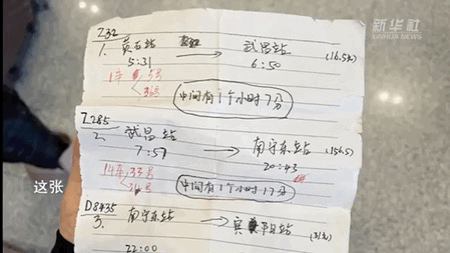 新华社
XINHUA NEWS
Z32
1. 黄石站 → 武昌站 (16.5元)
5:31 6:50
1车 5号
36号
中间有1个小时7分
Z285
2. 武昌站 → 南宁东站 (156.5)
7:57 20:43
14车 33号
34号
中间有1个小时17分
这张
D8435
3. 南宁东站 → 宾阳站 (31元)
22:00